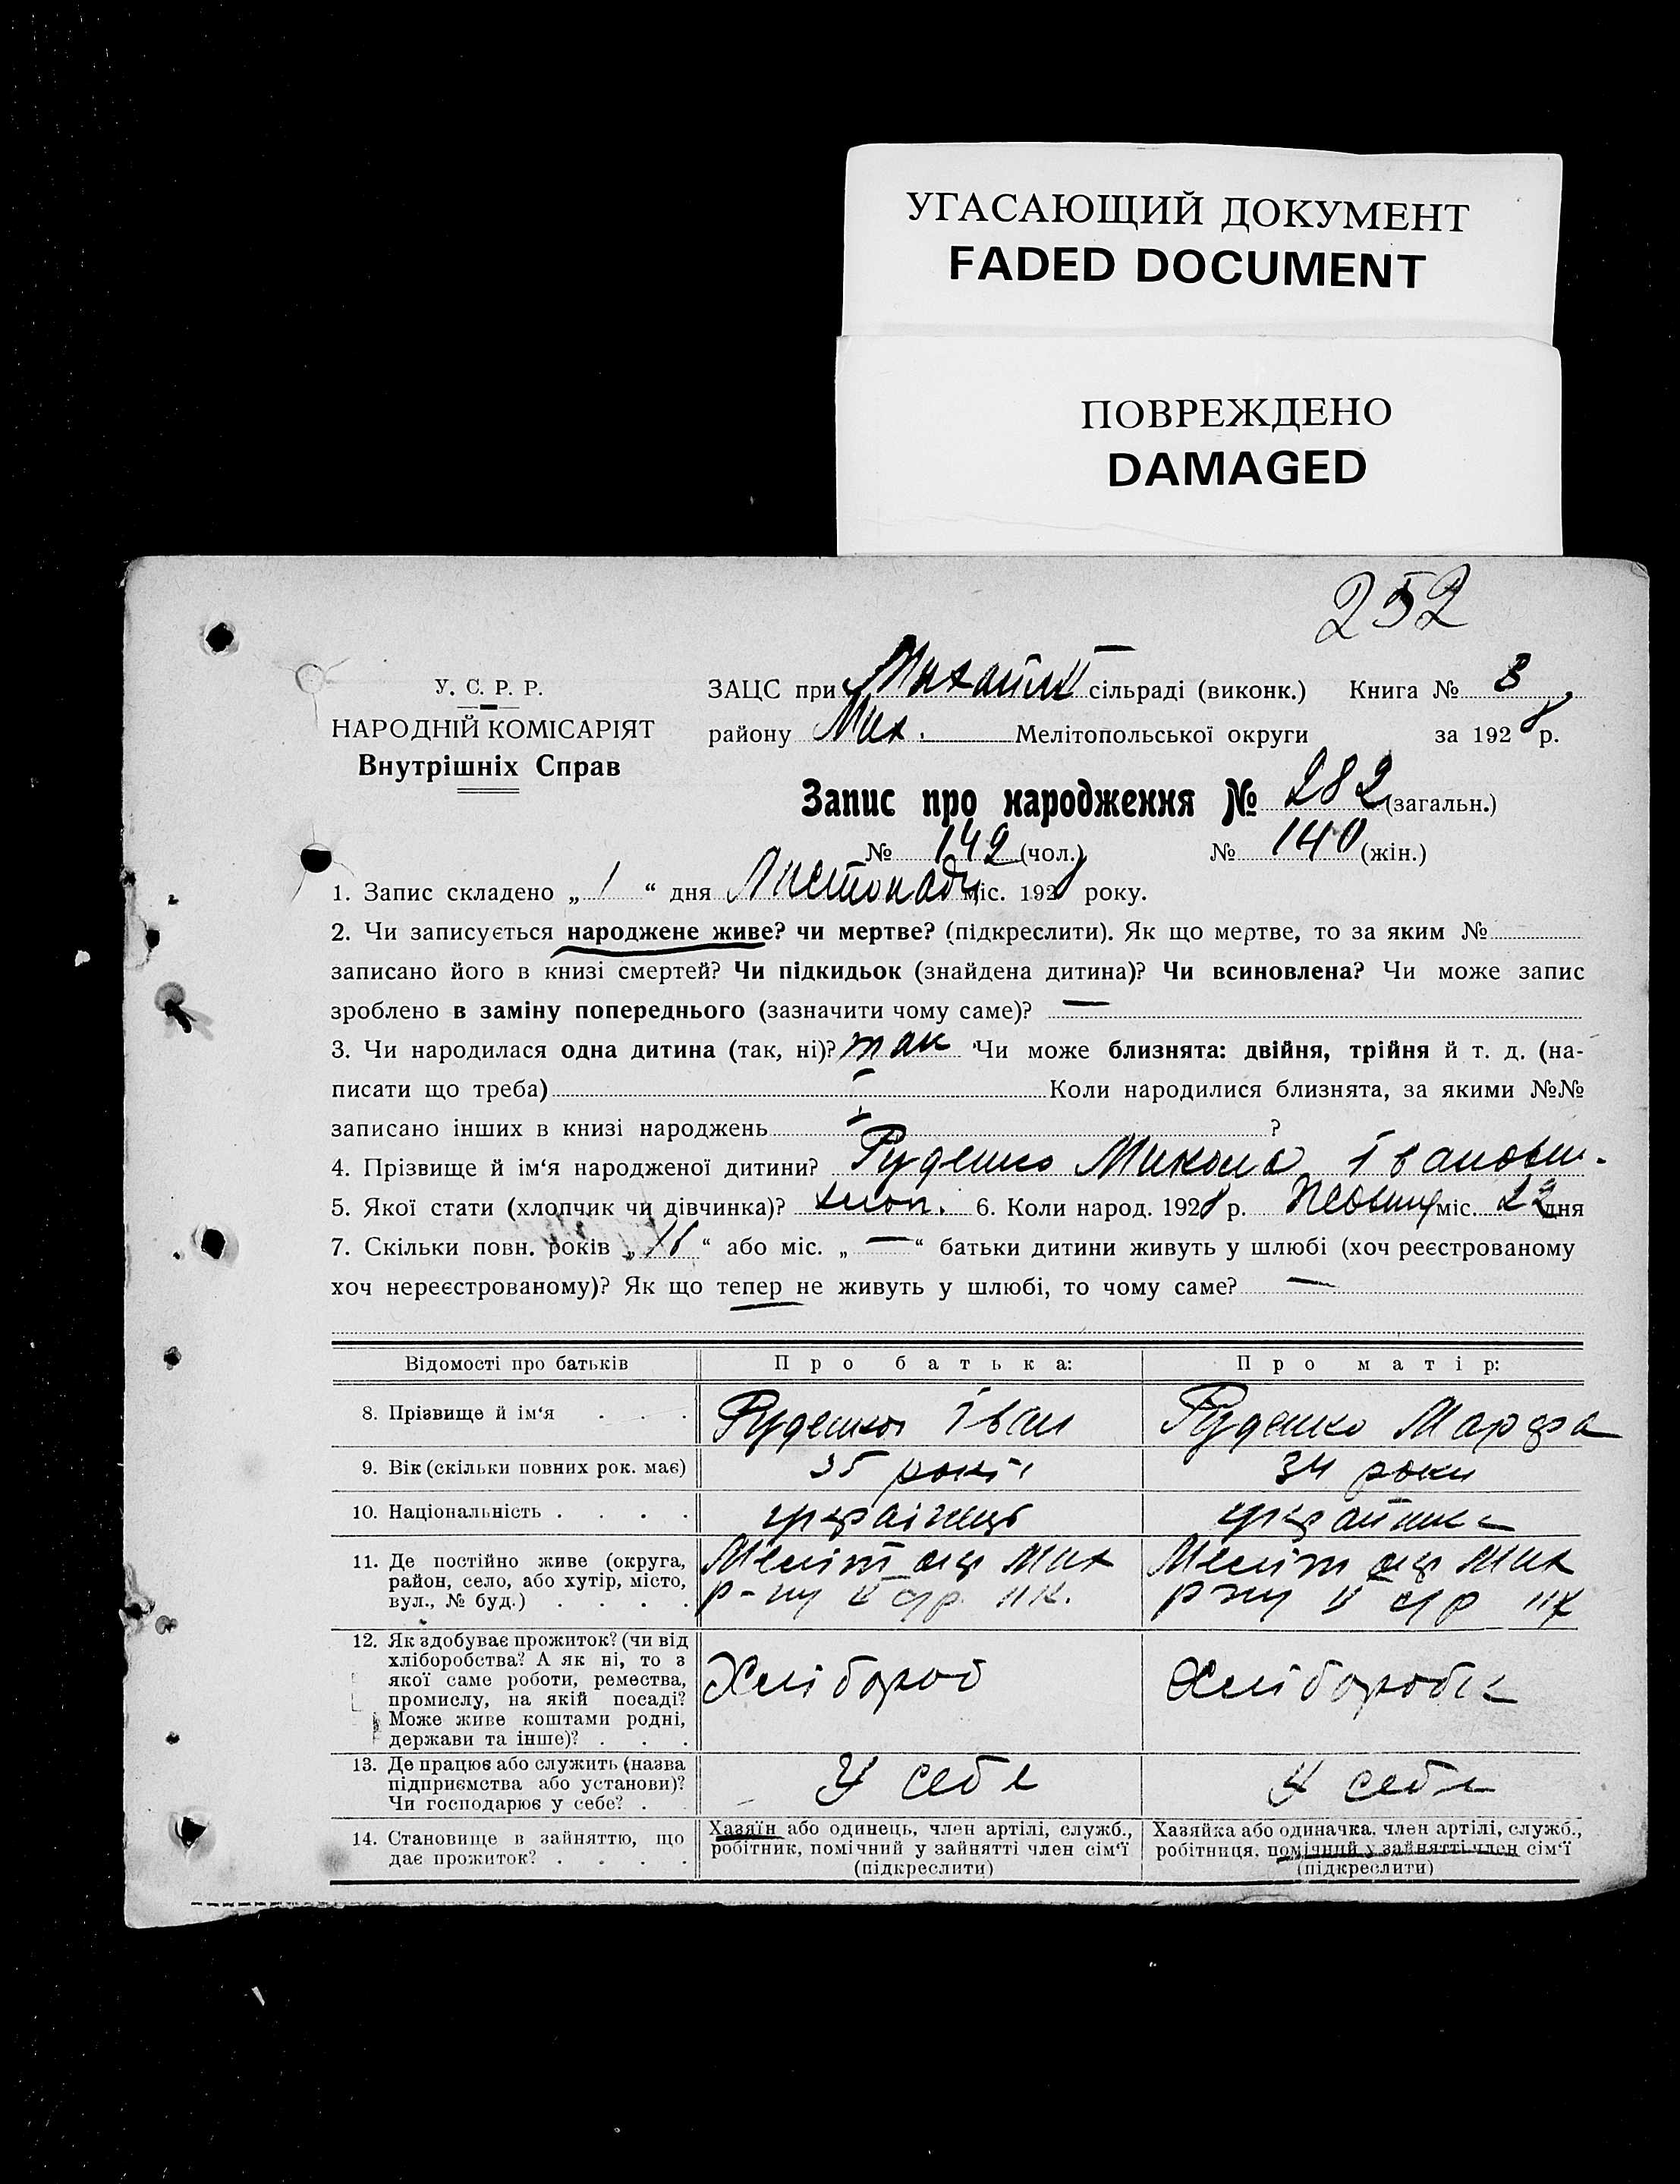 УГАСАЮЩИЙ ДОКУМЕНТ
FADED DOCUMENT
ПОВРЕЖДЕНО
DAMAGED
252
У. С. Р. Р.
НАРОДНІЙ КОМІСАРІЯТ
Внутрішніх Справ
ЗАЦС при сільраді (виконк.) Книга № 3
району Мих. Мелітопольської округи за 1928 р.
Запис про народження № 282 (загальн.)
№ 142 (чол.) № 140 (жін.)
1. Запис складено „ 1 “ дня Листопаду міс. 1928 року.
2. Чи записується народжене живе? чи мертве? (підкреслити). Як що мертве, то за яким №
записано його в книзі смертей? Чи підкидьок (знайдена дитина)? Чи всиновлена? Чи може запис
зроблено в заміну попереднього (зазначити чому саме)? —
3. Чи народилася одна дитина (так, ні)? так Чи може близнята: двійня, трійня й т. д. (на-
писати що треба) Коли народилися близнята, за якими №№
записано інших в книзі народжень ?
4. Прізвище й ім‘я народженої дитини? Руденко Микола Іванович.
5. Якої стати (хлопчик чи дівчинка)? хлоп. 6. Коли народ. 1928 р. міс. 22 дня
7. Скільки повн. років „ 16 “ або міс. „ — “ батьки дитини живуть у шлюбі (хоч реєстрованому
хоч нереєстрованому)? Як що тепер не живуть у шлюбі, то чому саме? —
Відомості про батьків Про батька: Про матір:
8. Прізвище й ім‘я . . . Руденко Іван Руденко Марфа
9. Вік (скільки повних рок. має) 35 років 34 роки
10. Національність . . . . українець українка
11. Де постійно живе (округа, Меліт окр Мих Меліт окр Мих
район, село, або хутір, місто, р-ну р-ну
вул., № буд.) . . . .
12. Як здобуває прожиток? (чи від
хліборобства? А як ні, то з
якої саме роботи, ремества, Хлібороб Хліборобка
промислу, на якій посаді?
Може живе коштами родні,
держави та інше)? . . .
13. Де працює або служить (назва
підприємства або установи)? У себе У себе
Чи господарює у себе? .
14. Становище в зайняттю, що Хазяїн або одинець, член артілі, служб., Хазяйка або одиначка, член артілі, служб.,
дає прожиток? . . . . робітник, помічний у зайнятті член сім‘ї робітниця, помічний у зайнятті член сім‘ї
(підкреслити) (підкреслити)